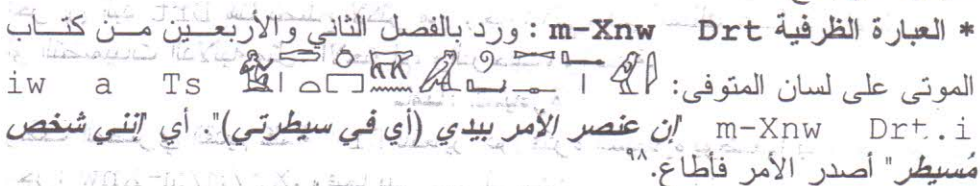 * العبارة الظرفية m-Xnw Drt : ورد بالفصل الثاني والأربعــين مــن كتــاب
الموتى على لسان المتوفى: iw a Ts
m-Xnw Drt.i "إن عنصر الأمر بيدي (أي في سيطرتي)". أي "إنني شخص
مُسيطر" أصدر الأمر فأطاع.٩٨